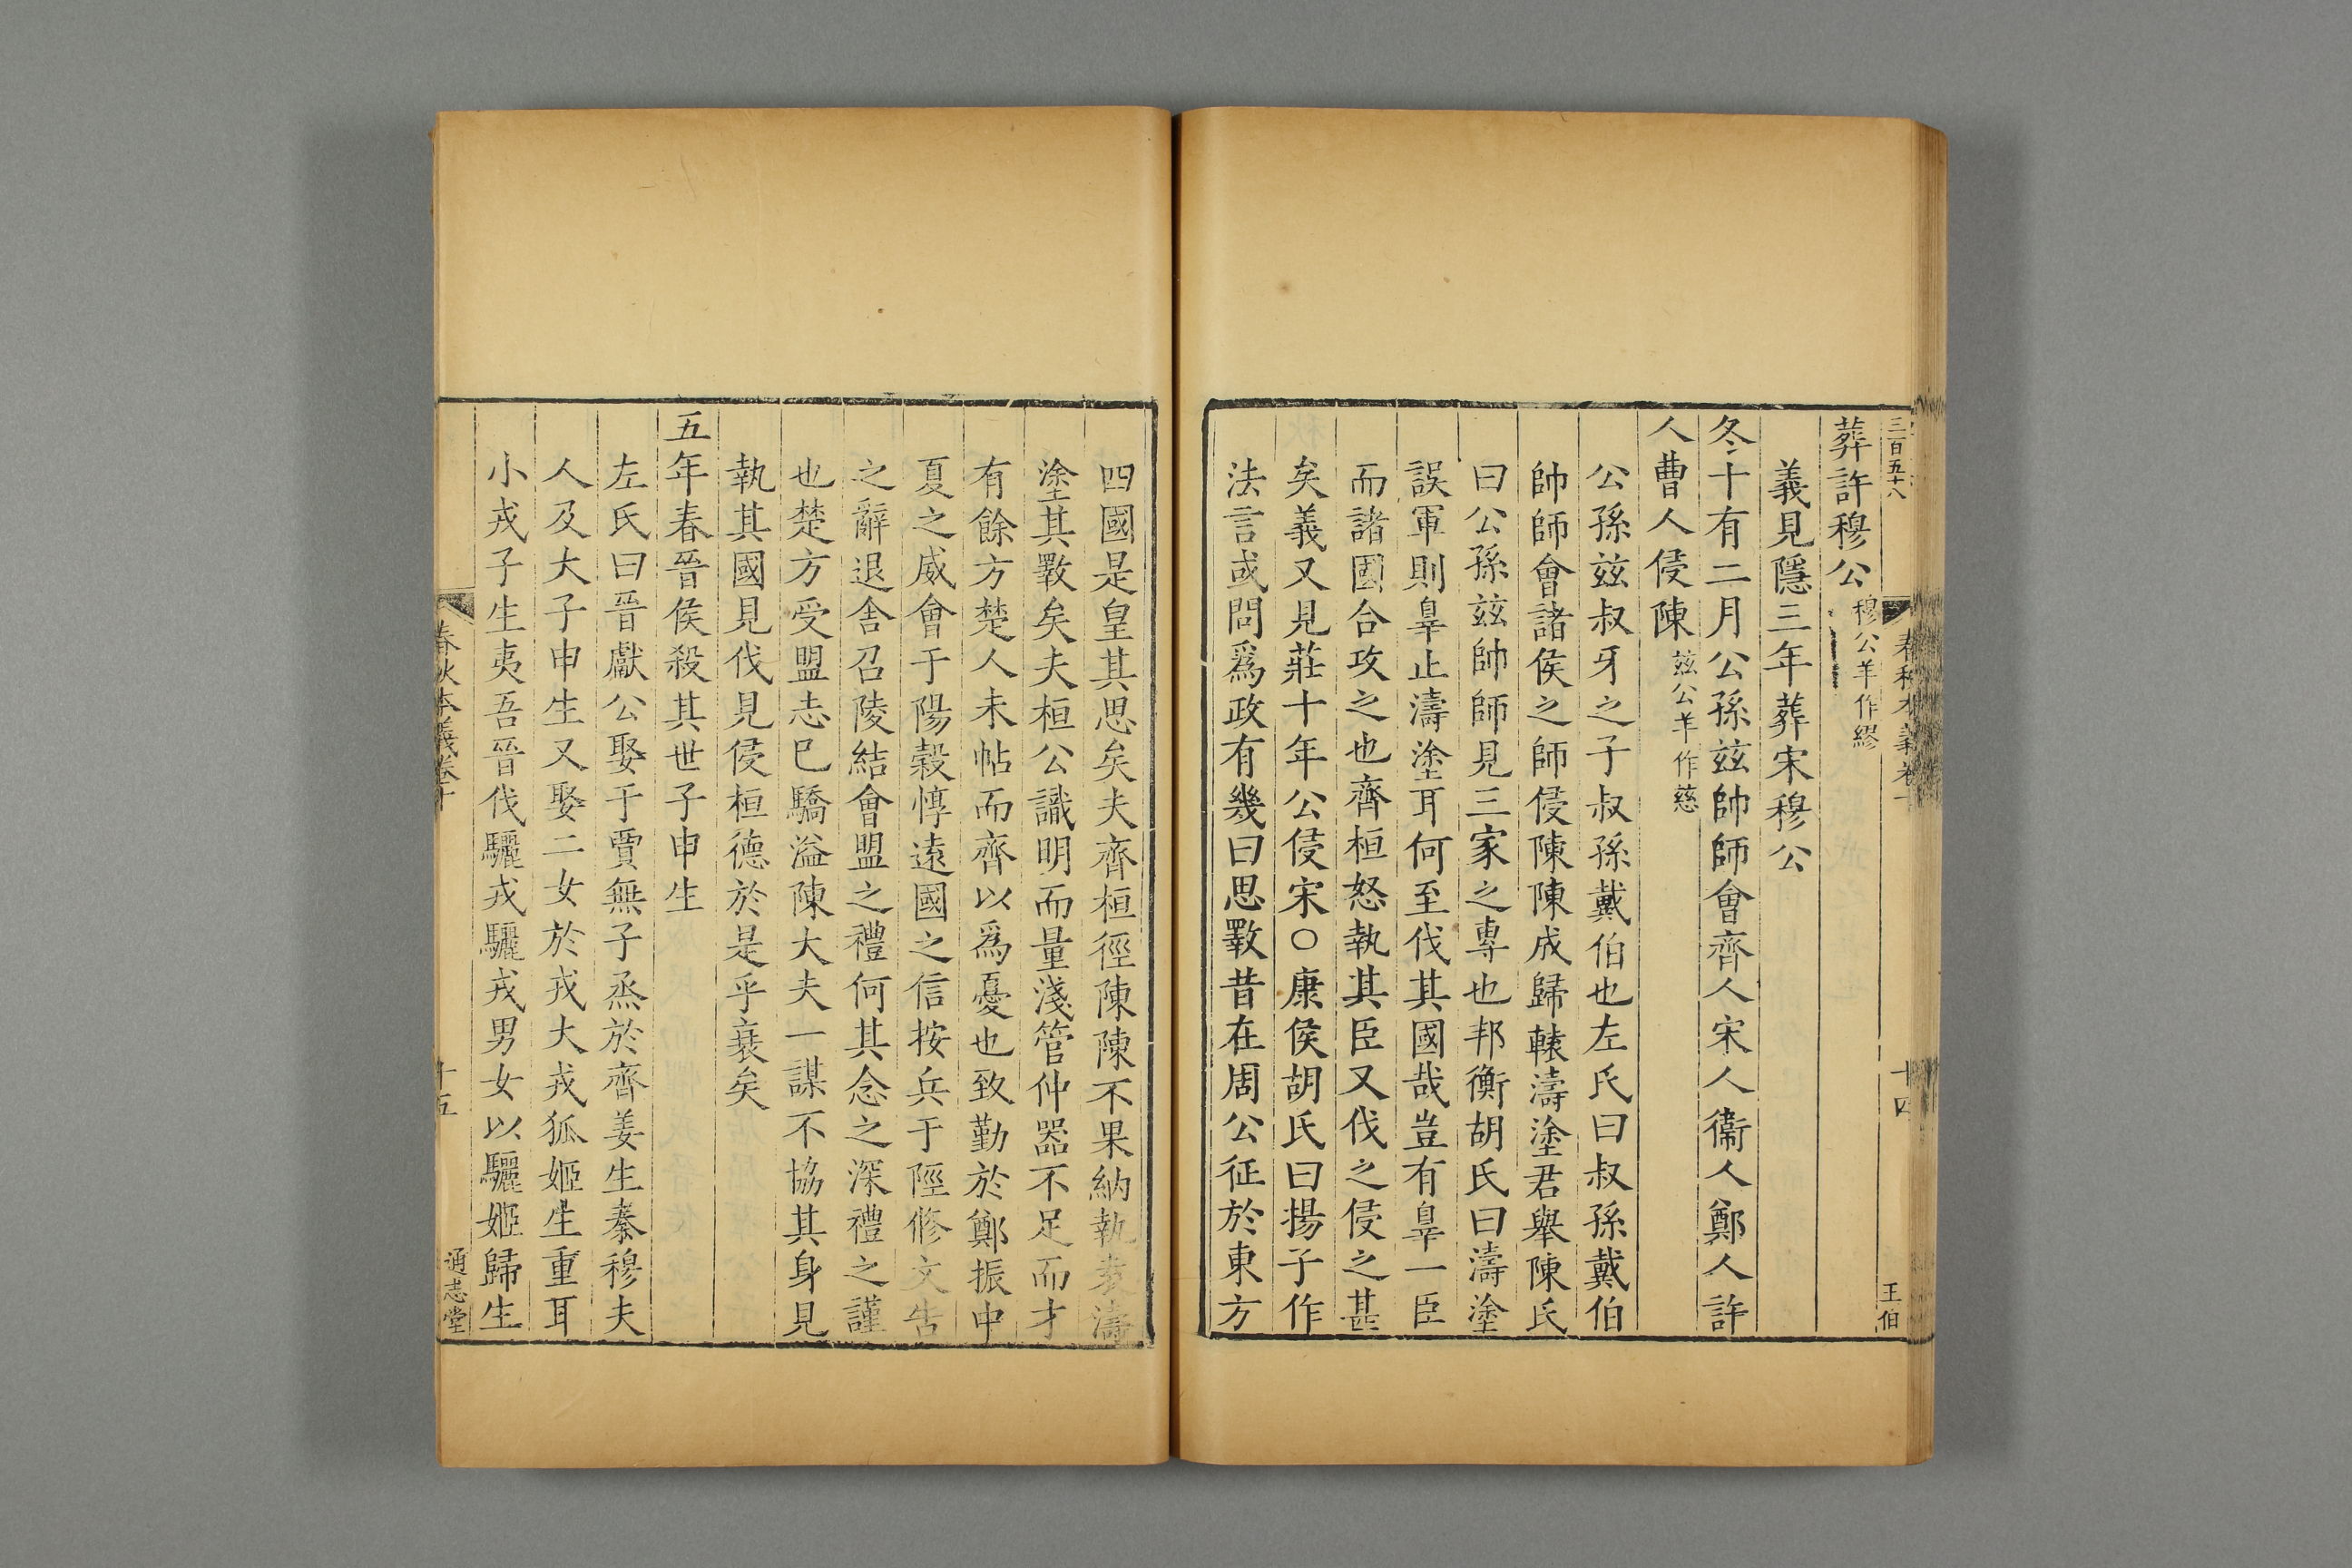 三百五十八
春秋本義卷十
十四
王伯
葬許穆公穆公羊作繆
義見隱三年葬宋穆公
冬十有二月公孫茲帥師會齊人宋人衞人鄭人許
人曹人侵陳茲公羊作慈
公孫茲叔牙之子叔孫戴伯也左氏曰叔孫戴伯
帥師會諸侯之師侵陳陳成歸轅濤塗君舉陳氏
曰公孫茲帥師見三家之專也邦衡胡氏曰濤塗
誤軍則辠止濤塗耳何至伐其國哉豈有辠一臣
而諸國合攻之也齊桓怒執其臣又伐之侵之甚
矣義又見莊十年公侵宋○康侯胡氏曰揚子作
法言或問爲政有幾曰思斁昔在周公征於東方
四國是皇其思矣夫齊桓徑陳陳不果納執袁濤
塗其斁矣夫桓公識明而量淺管仲器不足而才
有餘方楚人未帖而齊以爲憂也致勤於鄭振中
夏之威會于陽榖惇遠國之信按兵于陘修文告
之辭退舍召陵結會盟之禮何其念之深禮之謹
也楚方受盟志已驕溢陳大夫一謀不協其身見
執其國見伐見侵桓德於是乎衰矣
五年春晉侯殺其世子申生
左氏曰晉獻公娶于賈無子烝於齊姜生秦穆夫
人及大子申生又娶二女於戎大戎狐姬生重耳
小戎子生夷吾晉伐驪戎驪戎男女以驪姬歸生
春秋本義卷十
十五
通志堂